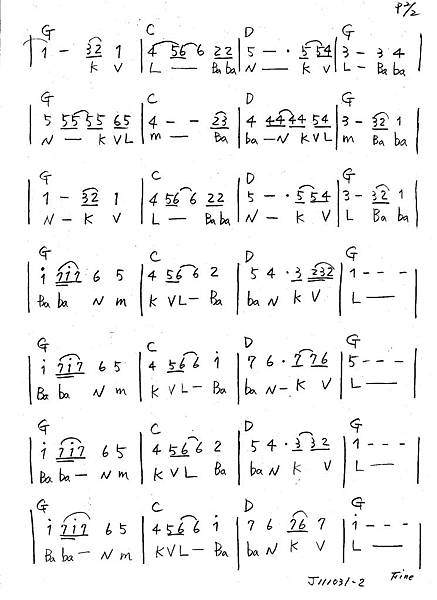 P2/2
G C D G
| 1 - 32 1 | 4 56 6 22 | 5 - · 5 54 | 3 - 3 4 |
K V L — Ba ba N — K V L - Ba ba
G C D G
| 5 55 55 65 | 4 - - 23 | 4 44 44 54 | 3 - 32 1 |
N — K VL m — Ba ba — N K VL m Ba ba
G C D G
| 1 - 32 1 | 4 56 6 22 | 5 - · 5 54 | 3 - 32 1 |
N - K V L — Ba ba N - K V L Ba ba
G C D G
| i 7i7 6 5 | 4 56 6 2 | 5 4 · 3 232 | 1 - - - |
Ba ba N m K VL - Ba ba N K V L —
G C D G
| i 7i7 6 5 | 4 56 6 i | 7 6 · 7 76 | 5 - - - |
Ba ba N m K VL - Ba ba N - K V L —
G C D G
| i 7i7 6 5 | 4 56 6 2 | 5 4 · 3 32 | 1 - - - |
Ba ba - N m K V L Ba ba N K V L —
G C D G
| i 7i7 6 5 | 4 56 6 i | 7 6 76 7 | i - - - |
Ba ba - N m K V L - Ba ba N K V L —
J111031-2